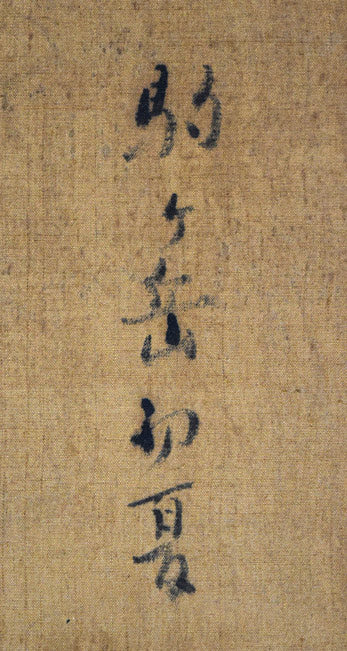 駒ヶ岳初夏